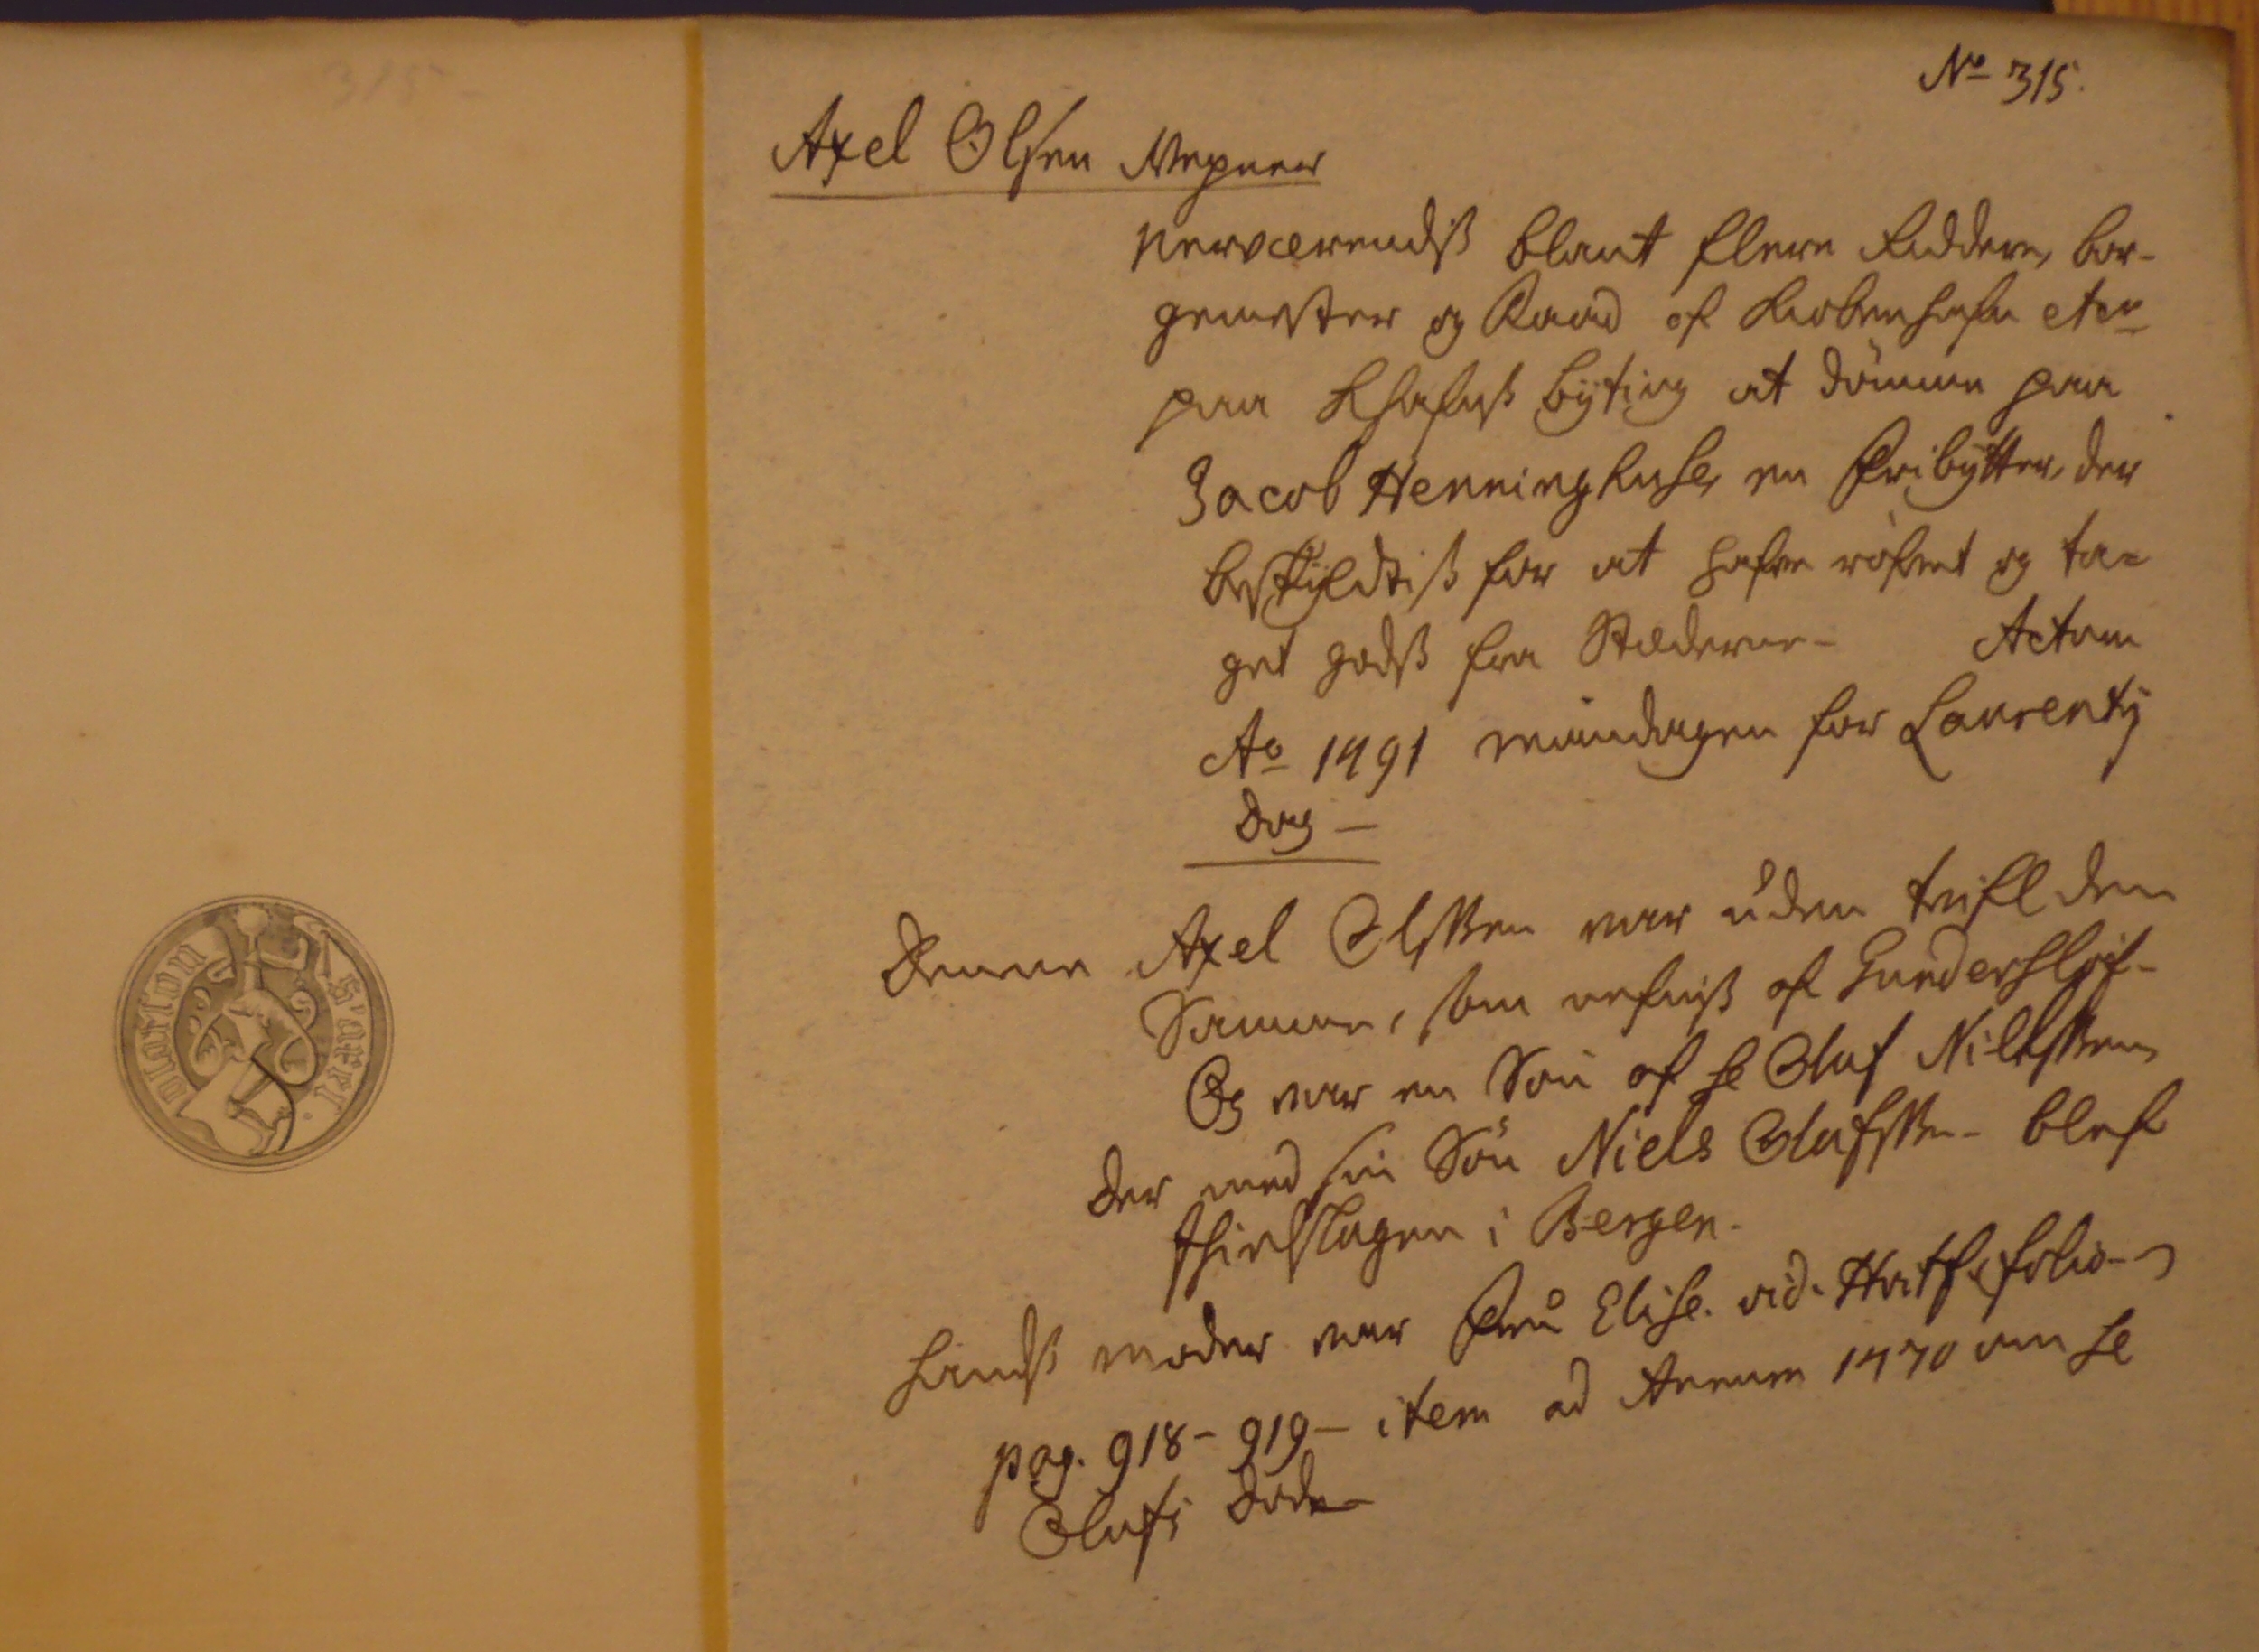 315
No 315.
Axel Olsen Wepner
nerværendiß blant flere Riddere, bor-
gemester og Raad af Kiobenhafn etc
paa Khafnß bÿting at dömme paa
Jacob Henninghuse, en Fribÿtter, der
beskÿldtiß for at hafve röfvet og ta-
get godß fra Stæderne - Actum
Ao 1491 mandagen for Laurentÿ
dag -
Denne Axel Olssen var uden tvifl den
Samme, som nefniß af Gunderslöf-
Og var en Sön af he Oluf Nilssen,
der med sin Sön Niels Olufssen - blef
ihielslagen i Bergen.
Handß moder var Fru Elise. vid. Hvitf. folio -
pag. 918 - 919 - item ad Annum 1470 om he
Olufs död
olafson